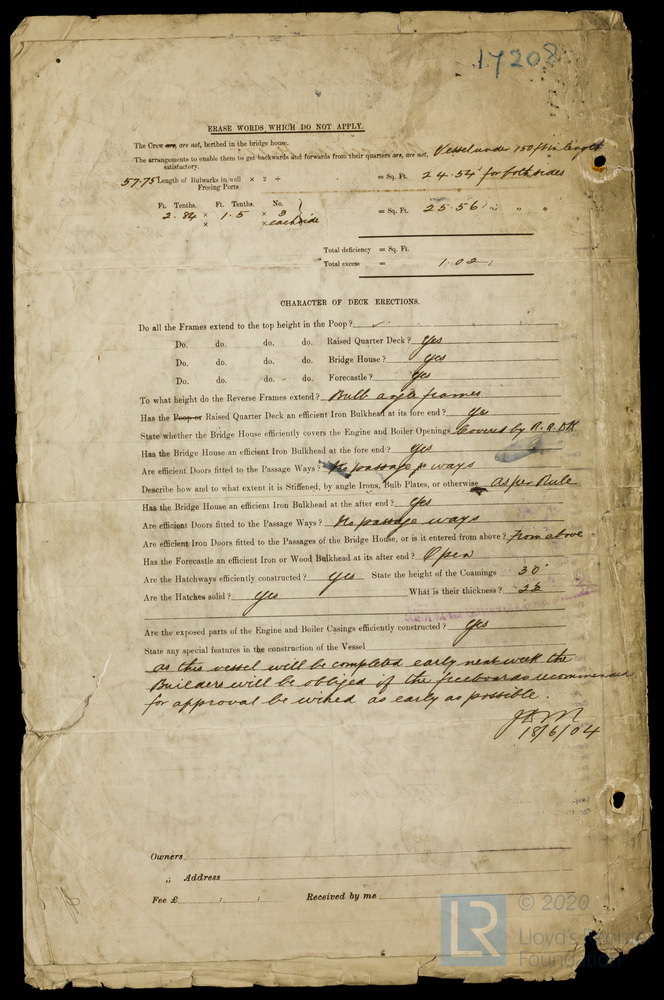 17208
ERASE WORDS WHICH DO NOT APPLY.
The Crew are, are not, berthed in the bridge house.
The arrangements to enable them to get backwards and forwards from their quarters are, are not, Vessel under 150 ft in length
satisfactory.
57.75 Length of Bulwarks in well × 2 ÷ = Sq. Ft. 24.54 for both sides
Freeing Ports
Ft. Tenths. Ft. Tenths. No.
2.84 × 1.5 × 3 = Sq. Ft. 25.56 " " "
× × each side
Total deficiency = Sq. Ft.
" Total excess = 1.02
CHARACTER OF DECK ERECTIONS.
Do all the Frames extend to the top height in the Poop? ✓
Do. do. do. do. Raised Quarter Deck? Yes
Do. do. do. do. Bridge House? Yes
Do. do. do. do. Forecastle? Yes
To what height do the Reverse Frames extend? Bulb angle frames
Has the Poop or Raised Quarter Deck an efficient Iron Bulkhead at its fore end? Yes
State whether the Bridge House efficiently covers the Engine and Boiler Openings Covered by R.Q.DK
Has the Bridge House an efficient Iron Bulkhead at the fore end? Yes
Are efficient Doors fitted to the Passage Ways? No passage ways
Describe how and to what extent it is Stiffened, by angle Irons, Bulb Plates, or otherwise As per Rule
Has the Bridge House an efficient Iron Bulkhead at the after end? Yes
Are efficient Doors fitted to the Passage Ways? No passage ways
Are efficient Iron Doors fitted to the Passages of the Bridge House, or is it entered from above? From above
Has the Forecastle an efficient Iron or Wood Bulkhead at its after end? Open
Are the Hatchways efficiently constructed? Yes State the height of the Coamings 30"
Are the Hatches solid? Yes What is their thickness?
Are the exposed parts of the Engine and Boiler Casings efficiently constructed? Yes
State any special features in the construction of the Vessel
As this vessel will be completed early next week the
Builders will be obliged if the freeboards recommended
for approval be wired as early as possible.
18/6/04
Owners
" Address
Fee £ : : Received by me
LR © 2020
Lloyd's Register
Foundation